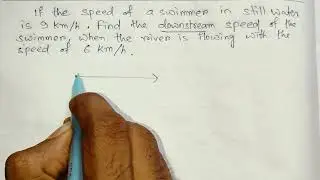 If the speed of a swimmer in still water
is 9 km/h. Find the downstream speed of the
swimmer, when the river is flowing with the
speed of 6 km/h.